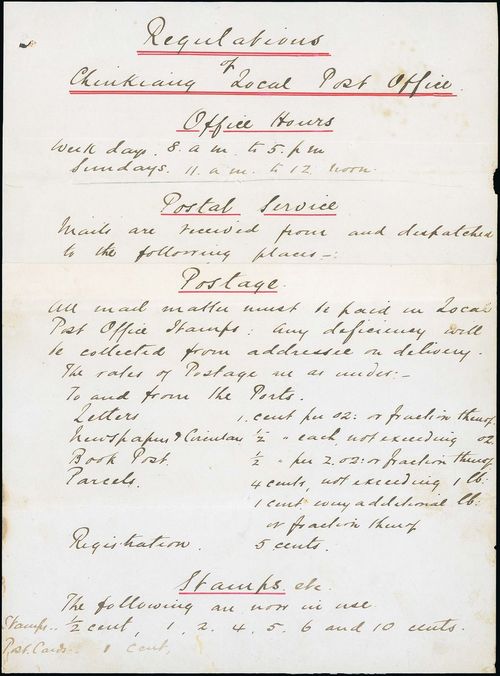 Regulations
of
Chinkiang Local Post Office.
Office Hours
Week days. 8. a.m. to 5. p.m
Sundays. 11. a.m. to 12 noon.
Postal Service
Mails are received from and dispatched
to the following places -:
Postage.
All mail matter must be paid in Local
Post Office Stamps: any deficiency will
be collected from addressee on delivery.
The rates of Postage are as under:-
To and from the Ports.
Letters 1. cent per oz: or fraction thereof
Newspapers & Circulars ½ " each not exceeding oz.
Book Post. ½ " per 2. oz: or fraction thereof
Parcels. 4 cents, not exceeding 1 lb:
1 cent every additional lb:
or fraction thereof
Registration. 5 cents.
Stamps, etc.
The following are now in use
Stamps. ½ cent, 1, 2. 4. 5. 6 and 10 cents.
Post. Cards. 1 cent,